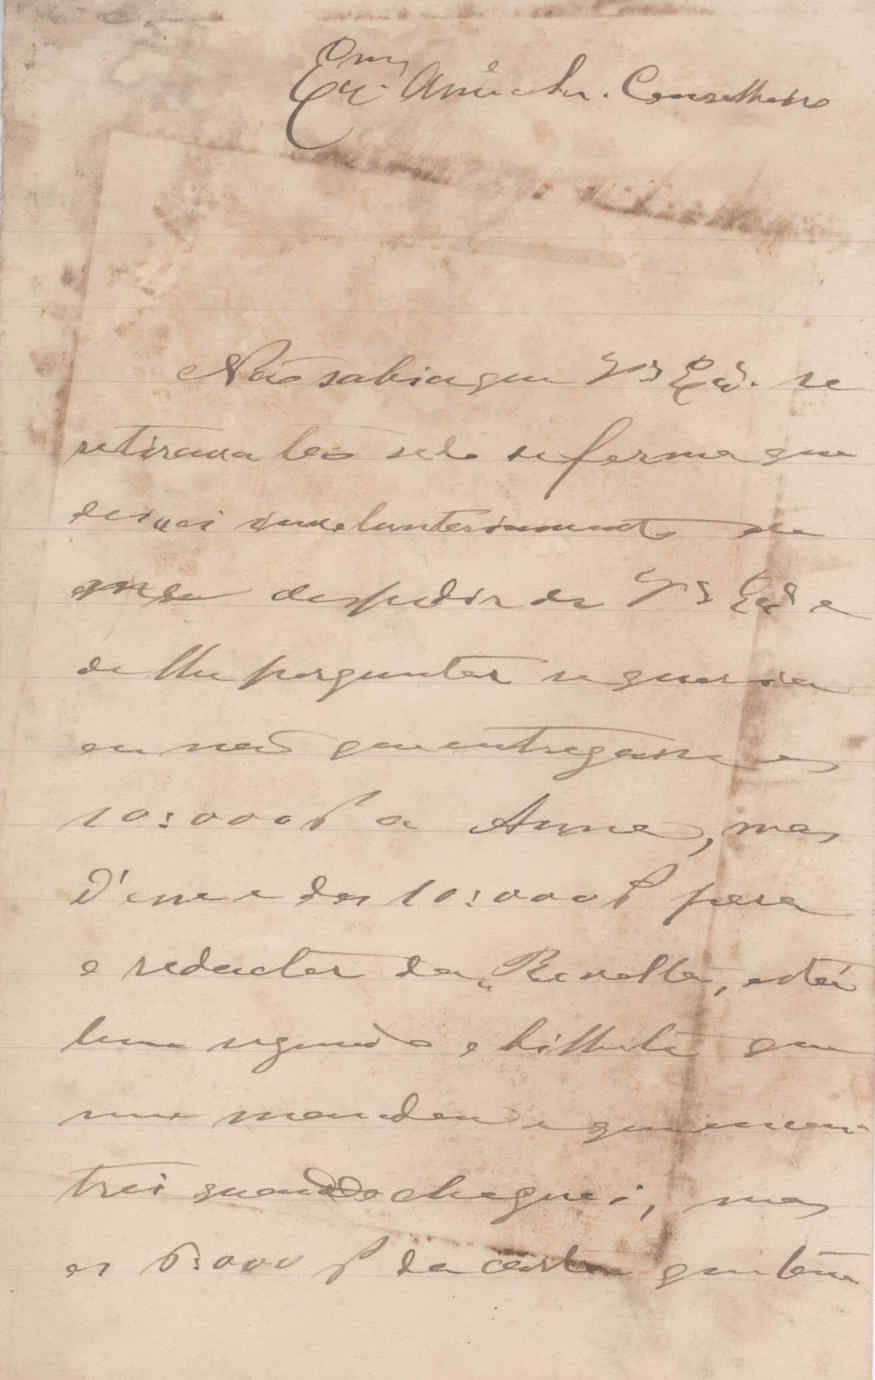 Exmo Amo e Snr. Conselheiro
Não sabia que Va Exa. se
retirava tão cedo de forma que
deixei involuntariamente de
me despedir de Va Exa e
de lhe perguntar se queria
ou não que entregasse os
10:000$ a Anna, mas
D'esse e dos 10:000$ para
o redactor da "Revolta, está
bem segundo o bilhete que
me mandou e que encon-
trei quando cheguei, mas
os 6:000$ da carta que tem